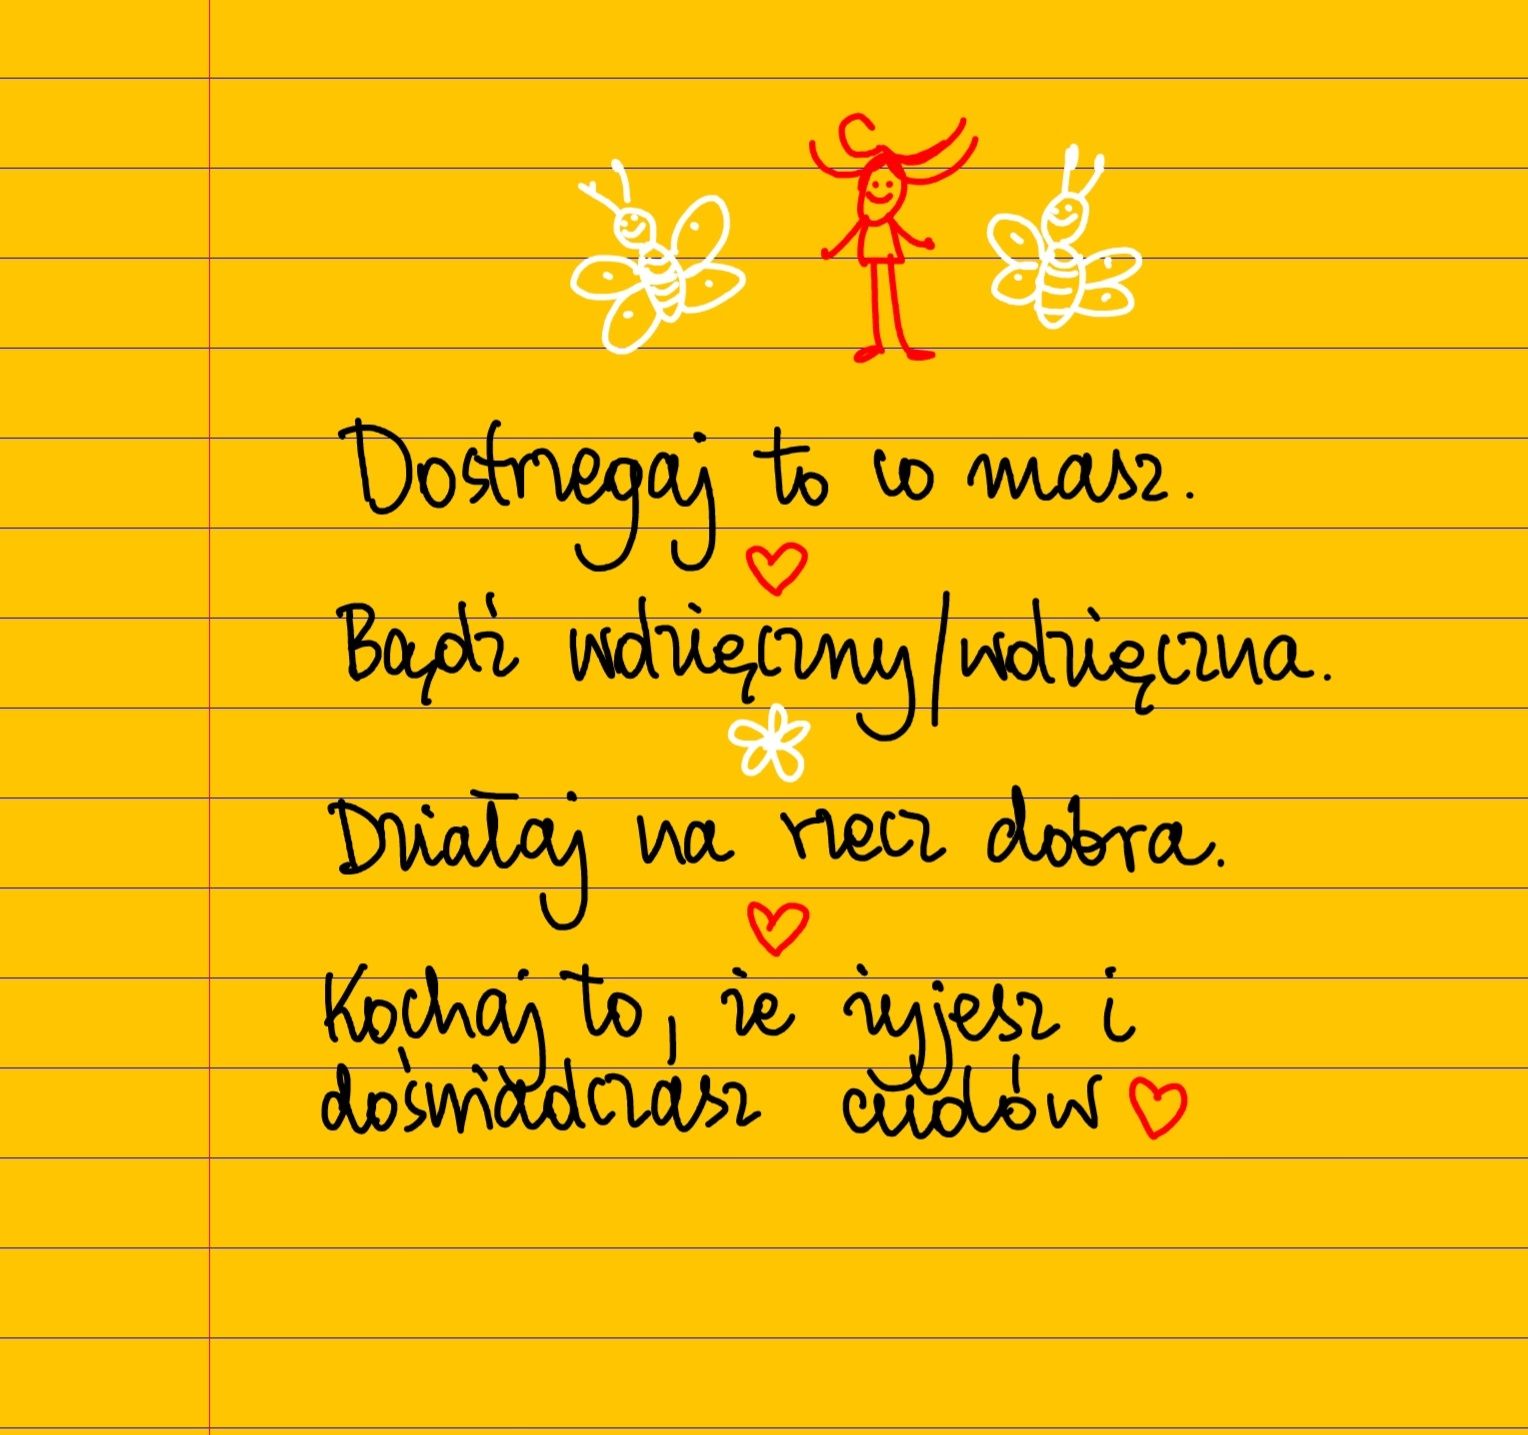 Dostrzegaj to co masz.
Bądź wdzięczny/wdzięczna.
Działaj na rzecz dobra.
Kochaj to, że żyjesz i
doświadczasz cudów